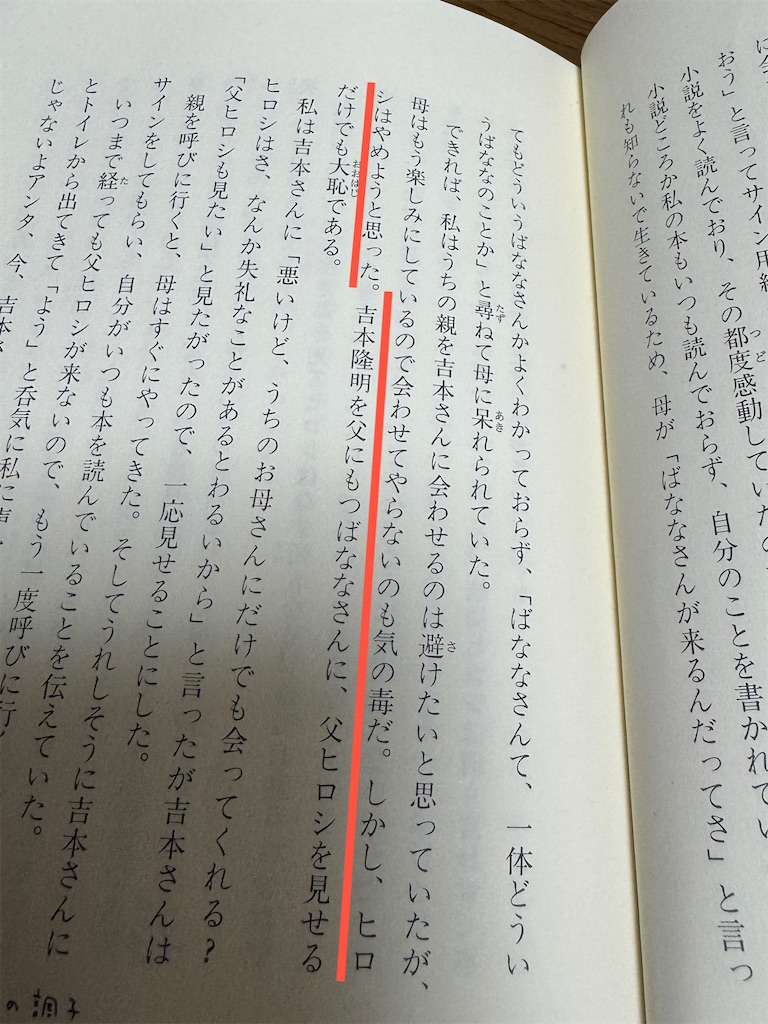 おう」と言ってサイン用紙
小説をよく読んでおり、その都度感動していたの
小説どころか私の本もいつも読んでおらず、自分のことを書かれてい
れも知らないで生きているため、母が「ばななさんが来るんだってさ」と言っ
てもどういうばななさんかよくわかっておらず、「ばななさんて、一体どうい
うばななのことか」と尋ねて母に呆れられていた。
できれば、私はうちの親を吉本さんに会わせるのは避けたいと思っていたが、
母はもう楽しみにしているので会わせてやらないのも気の毒だ。しかし、ヒロ
シはやめようと思った。吉本隆明を父にもつばななさんに、父ヒロシを見せる
だけでも大恥である。
私は吉本さんに「悪いけど、うちのお母さんにだけでも会ってくれる?
ヒロシはさ、なんか失礼なことがあるとわるいから」と言ったが吉本さんは
「父ヒロシも見たい」と見たがったので、一応見せることにした。
親を呼びに行くと、母はすぐにやってきた。そしてうれしそうに吉本さんに
サインをしてもらい、自分がいつも本を読んでいることを伝えていた。
いつまで経っても父ヒロシが来ないので、もう一度呼びに行く
とトイレから出てきて「よう」と呑気に私に声
じゃないよアンタ、今、吉本さ
の調子